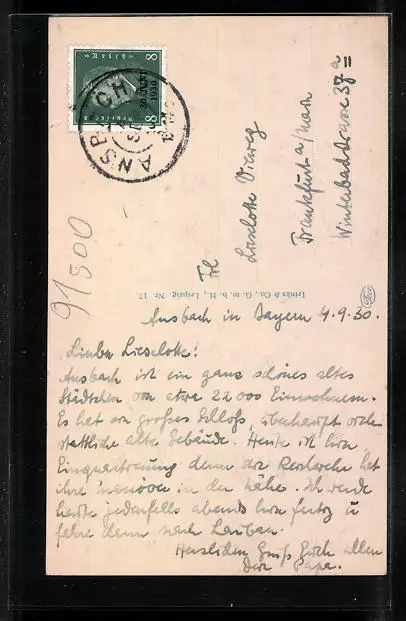 8
8
30. JUNI
1930
ANSBACH
Frl
Lieselotte Vieweg
Frankfurt a/Main
Winterbachstrasse 37 a
91500
Trinks & Co., G. m. b. H., Leipzig. Nr. 17.
Ansbach in Bayern 4.9.30.
Liebe Lieselotte!
Ansbach ist ein ganz schönes altes
Städtchen von etwa 22000 Einwohnern.
Es hat ein großes Schloss, überhaupt viele
stattliche alte Gebäude. Heute ist hier
Einquartierung denn die Reichswehr hat
ihre manöver in der Nähe. Ich werde
heute jedenfalls abends hier fertig u
fahre dann nach
Herzlichen Gruß Euch allen
Dein Papa.